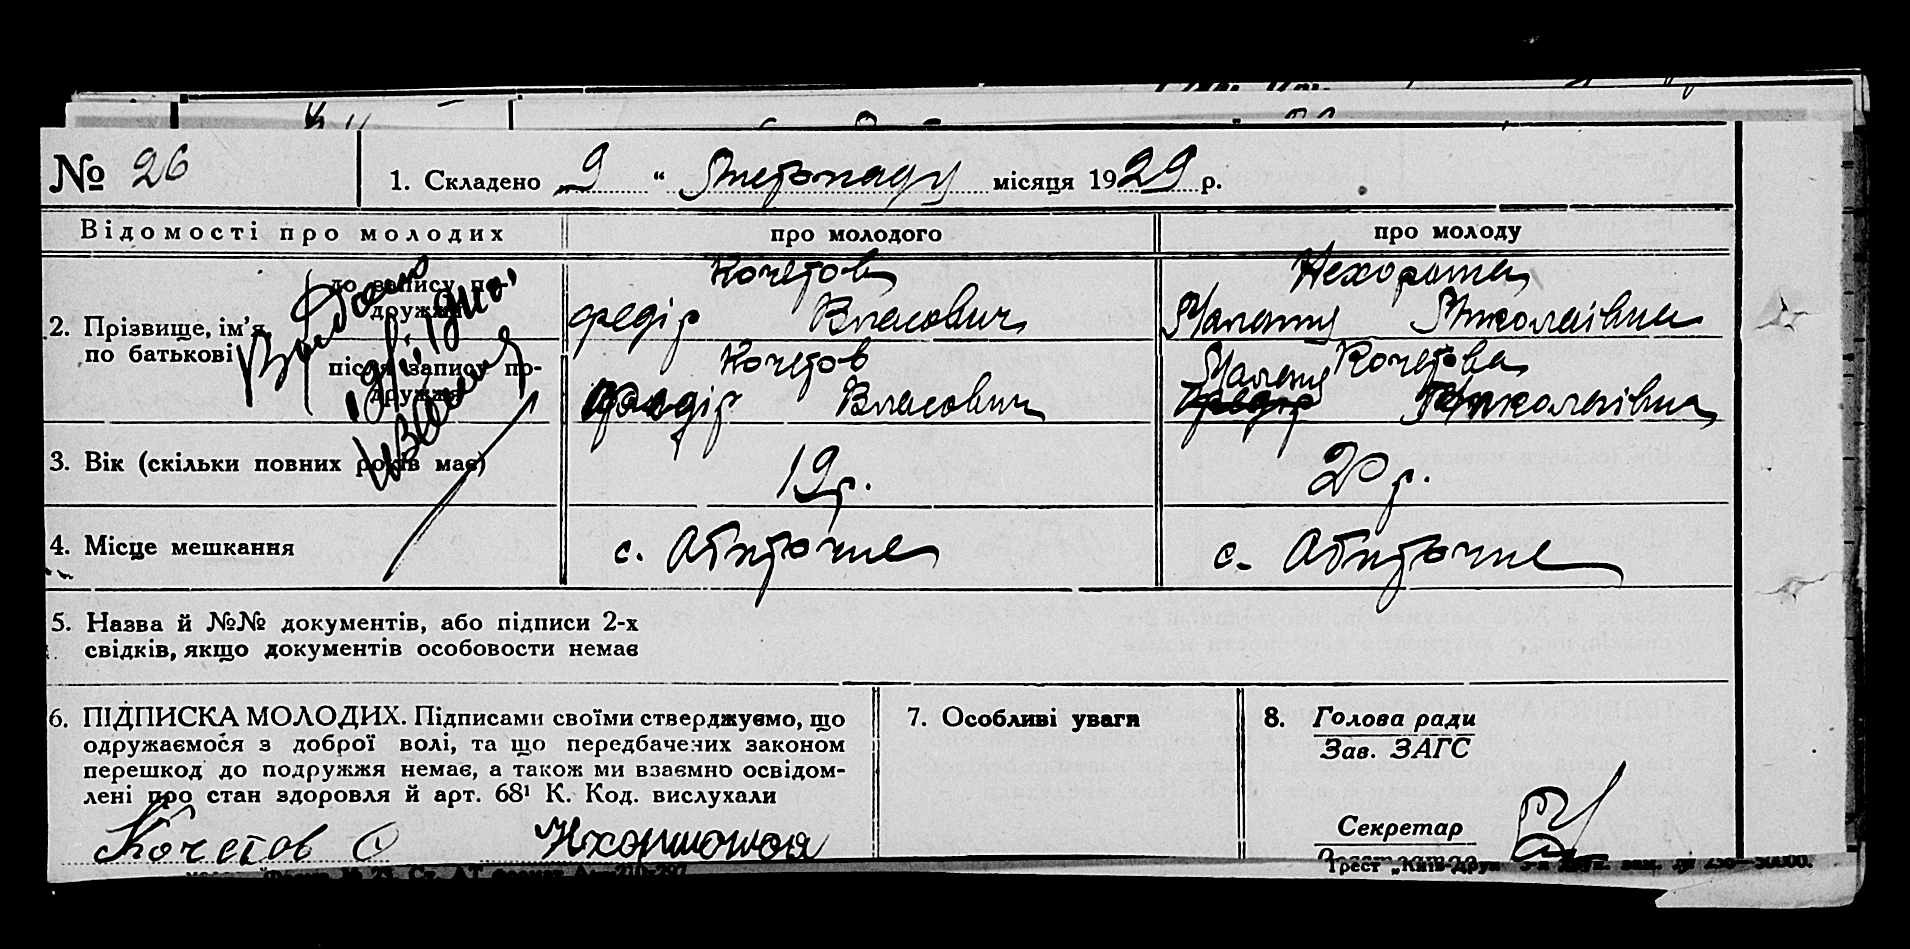 № 26
1. Складено 9 " Листопаду місяця 1929 р.
Відомості про молодих
про молодого
про молоду
2. Прізвище, ім'я,
по батькові
до запису по-
дружжя
Кочетов
Федір Власович
Маланія Миколаївна
після запису по-
дружжя
Кочетов
Федір Власович
Маланія Кочетова
Миколаївна
3. Вік (скільки повних років має)
19 р.
20 р.
4. Місце мешкання
с. Обиточне
с. Обиточне
5. Назва й №№ документів, або підписи 2-х
свідків, якщо документів особовости немає
6. ПІДПИСКА МОЛОДИХ. Підписами своїми стверджуємо, що
одружаємося з доброї волі, та що передбачених законом
перешкод до подружжя немає, а також ми взаємно освідом-
лені про стан здоровля й арт. 68¹ К. Код. вислухали
Кочетов
7. Особливі уваги
8. Голова ради
Зав. ЗАГС
Секретар
Трест „Київ-Друк"